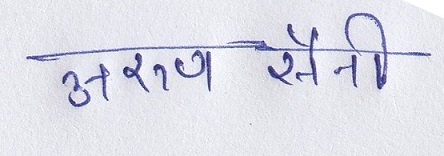 अरुण सैनी